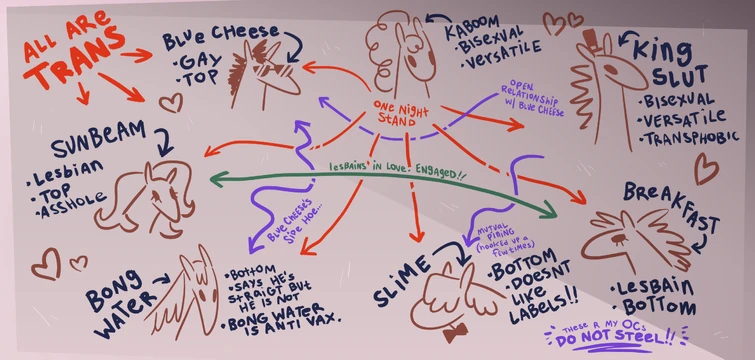 ALL ARE
TRANS
BLUE CHEESE
•GAY
•TOP
KABOOM
•BISEXUAL
•VERSATILE
KING
SLUT
•BISEXUAL
•VERSATILE
•TRANSPHOBIC
OPEN
RELATIONSHIP
W/ BLUE CHEESE
ONE NIGHT
STAND
SUNBEAM
•LESBIAN
•TOP
•ASSHOLE
LESBAINS IN LOVE! ENGAGED!!
BLUE CHEESE'S
SIDE HOE...
MUTUAL
PINING
(HOOKED UP A
FEW TIMES)
BREAKFAST
•LESBAIN
•BOTTOM
BONG
WATER
•BOTTOM
•SAYS HE'S
STRAIGT BUT
HE IS NOT
•BONG WATER
IS ANTI VAX.
SLIME
•BOTTOM
•DOESNT
LIKE
LABELS!!
THESE R MY OCs
DO NOT STEEL!!